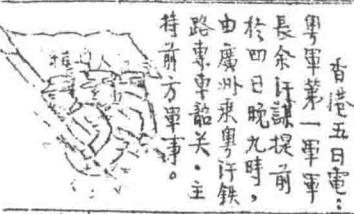 香港五日電：
粵軍第一軍軍
長余汗謀提前
於四日晚九時，
由廣州乘粵汗鉄
路車車韶关·主
持前方軍事。